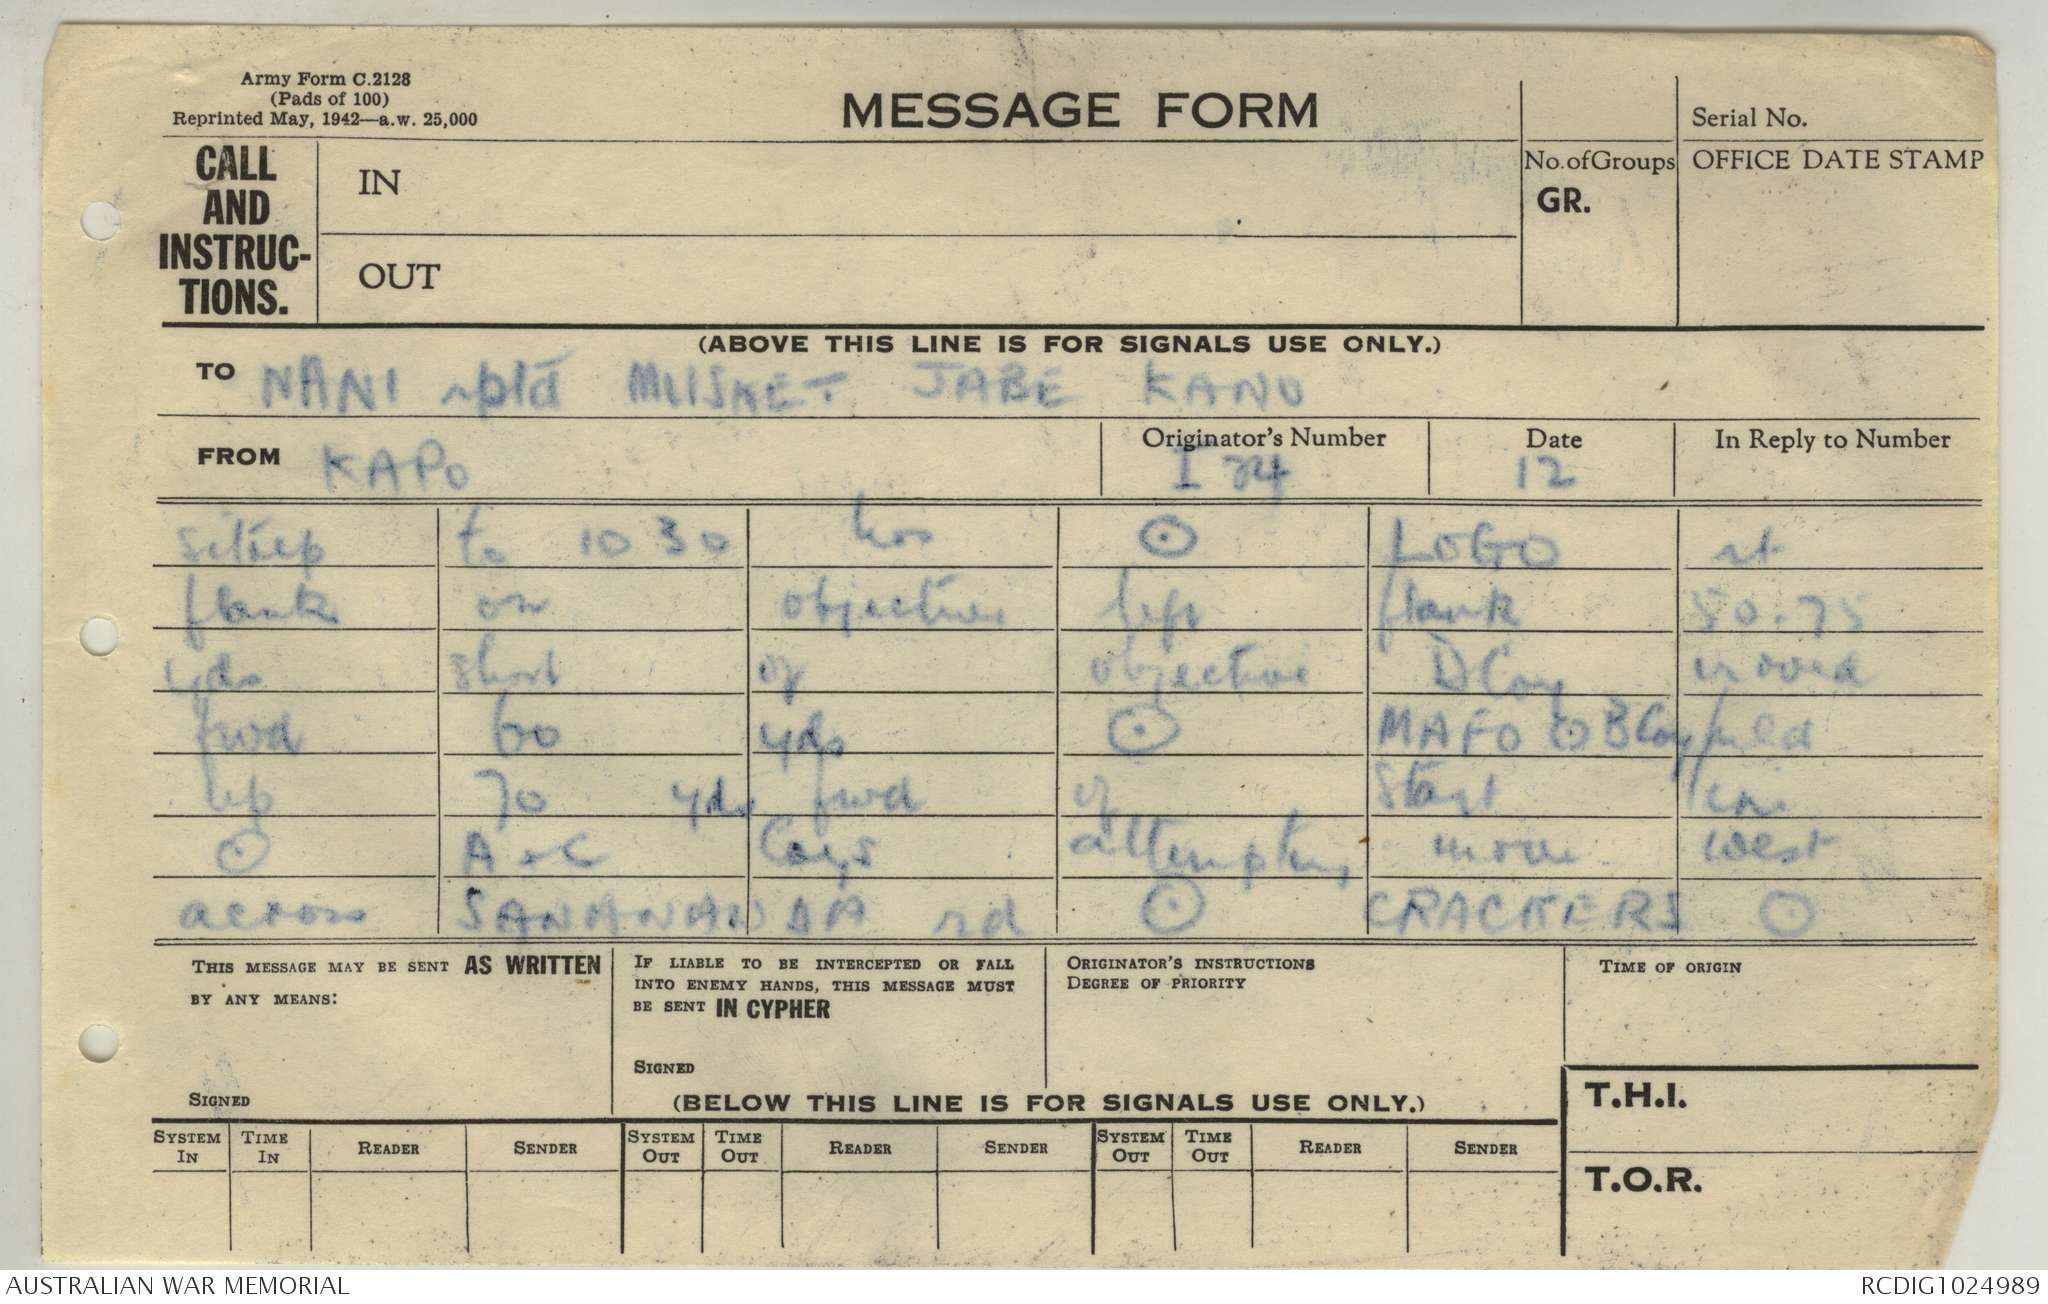 Army Form C.2128
(Pads of 100)
Reprinted May, 1942—a.w. 25,000
MESSAGE FORM
Serial No.
CALL AND INSTRUC-TIONS.
IN
OUT
No. of Groups
GR.
OFFICE DATE STAMP
(ABOVE THIS LINE IS FOR SIGNALS USE ONLY.)
TO NANI rptd MUSKET JABE KANU
FROM KAPO
Originator's Number I 74
Date 12
In Reply to Number
sitrep to 1030 hrs ⊙ LOGO rt
flank on objective left flank 50-75
yds short of objective D Coy
fwd 60 yds ⊙ MAFO ⊙ B Coy held
up 70 yds fwd of start line
⊙ A & C Coys attempting move west
across SANANANDA rd ⊙ CRACKERS ⊙
THIS MESSAGE MAY BE SENT AS WRITTEN
BY ANY MEANS:
SIGNED
IF LIABLE TO BE INTERCEPTED OR FALL
INTO ENEMY HANDS, THIS MESSAGE MUST
BE SENT IN CYPHER
SIGNED
ORIGINATOR'S INSTRUCTIONS
DEGREE OF PRIORITY
TIME OF ORIGIN
(BELOW THIS LINE IS FOR SIGNALS USE ONLY.)
T.H.I.
T.O.R.
SYSTEM IN TIME IN READER SENDER SYSTEM OUT TIME OUT READER SENDER SYSTEM OUT TIME OUT READER SENDER
AUSTRALIAN WAR MEMORIAL
RCDIG1024989